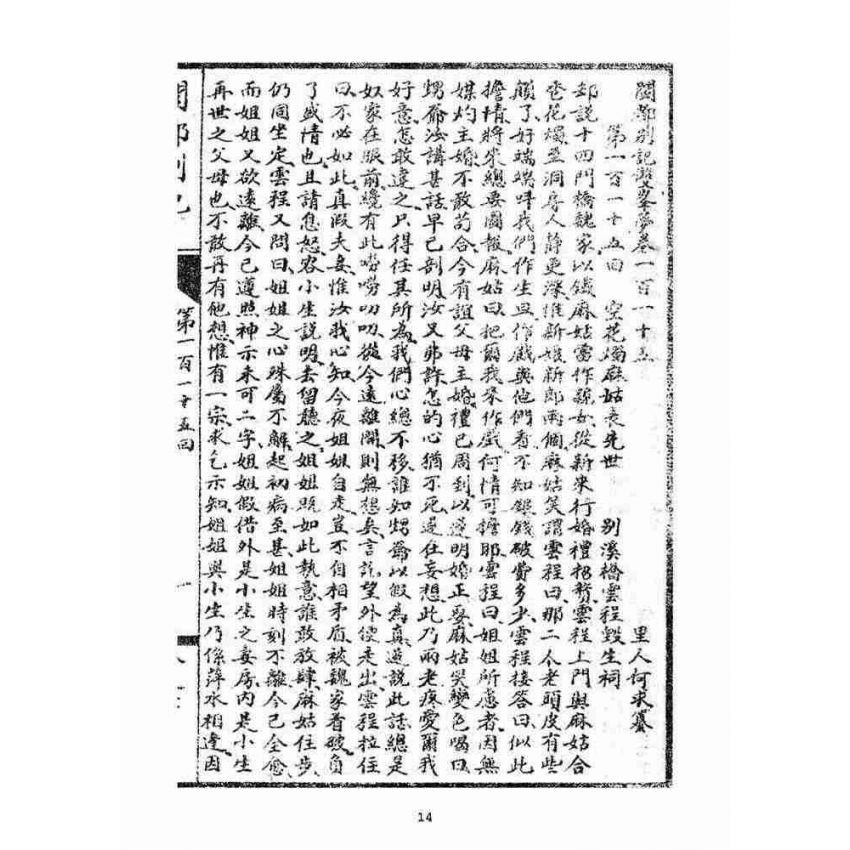 閩都別記雙峯夢卷一百一十五
里人何求纂
第一百一十五回　空花燭麻姑表先世　別溪橋雲程毀生祠
却說十四門橋魏家以鐵麻姑當作親女從新來行婚禮招贅雲程上門與麻姑合
巹花燭至洞房人靜更深唯新娘新郎兩個麻姑笑謂雲程曰那二个老頭皮有些
顛了好端端呼我們作生旦作戲與他們看不知銀錢破費多少雲程接答曰似此
擔情將來總要圖報麻姑曰把爾我來作戲何情可擔耶雲程曰姐姐所慮者因無
媒妁主婚不敢苟合今有誼父母主婚禮已周到以遂明婚正娶麻姑哭變色喝曰
甥爺汝講甚話早已剖明汝又弗許怎的心猶不死還在妄想此乃兩老疼愛爾我
好意怎敢違之只得任其所為我們心總不移誰知甥爺以假為真遂說此話總是
奴家在眼前纔有此嘮嘮叨叨從今遠離閣則無想矣言訖望外便走出雲程拉住
曰不必如此真假夫妾惟汝我心知今夜姐姐自走豈不自相矛盾被魏家看破負
了盛情也且請息怒容小生說明去留聽之姐姐既如此執意誰敢放肆麻姑住步
仍同坐定雲程又問曰姐姐之心殊屬不解起初病至甚姐姐時刻不離今已全愈
而姐姐又欲遠離今已遵照神示未可二字姐姐假借外是小生之妾房內是小生
再世之父母也不敢再有他想惟有一宗求乞示知姐姐與小生乃係萍水相逢因
閩都別記
第一百一十五回
14